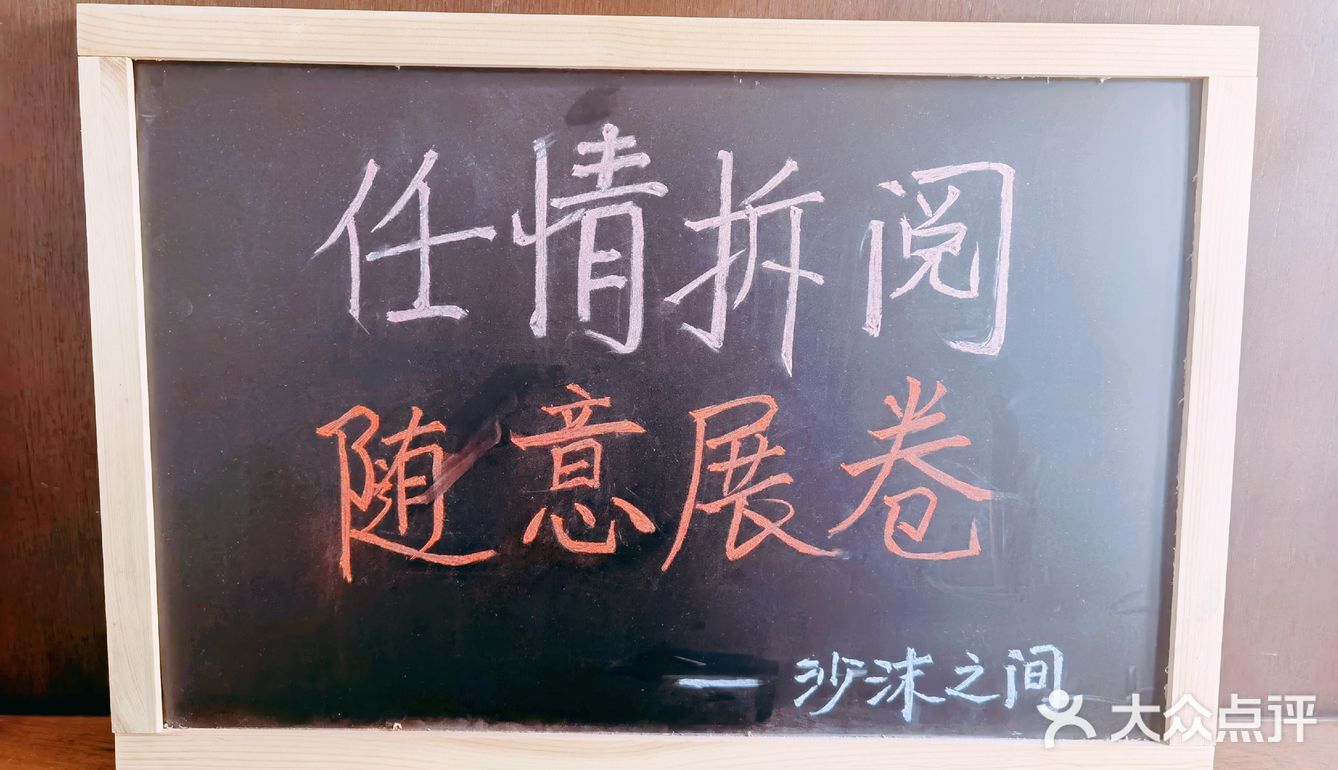 任情拆阅
随意展卷
— 沙沫之间
大众点评